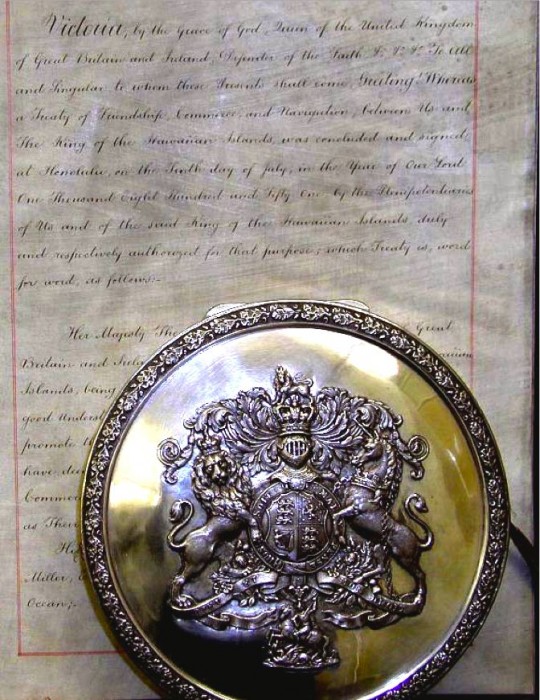 Victoria, by the Grace of God, Queen of the United Kingdom
of Great Britain and Ireland, Defender of the Faith &c &c &c To All
and Singular to whom these Presents shall come, Greeting! Whereas
a Treaty of Friendship, Commerce, and Navigation, between Us and
The King of the Hawaiian Islands, was concluded and signed,
at Honolulu, on the Tenth day of July, in the Year of Our Lord
One Thousand Eight Hundred and Fifty One by the Plenipotentiaries
of Us and of the said King of the Hawaiian Islands, duly
and respectively authorized for that purpose; which Treaty is, word
for word, as follows:-
Her Majesty The Great
Britain and
Islands, being
good
promote
have,
as
Miller,
Ocean;